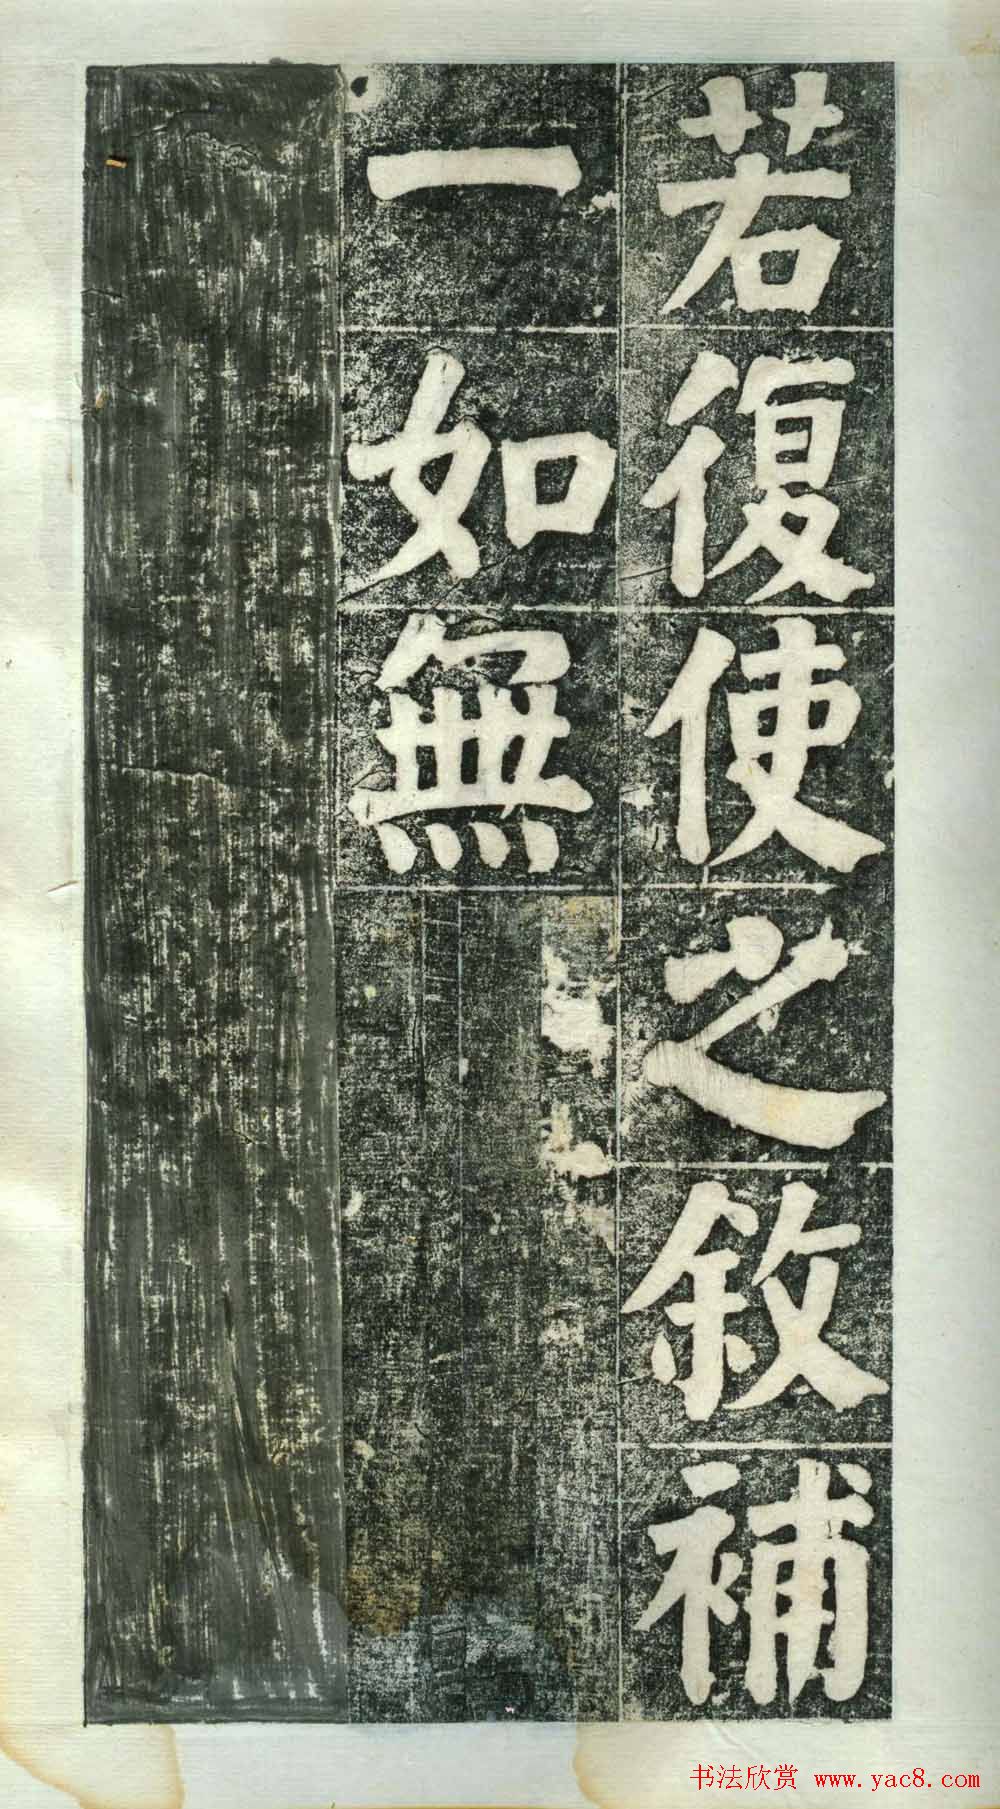 若復使之敘補
一如無
书法欣赏 www.yac8.com